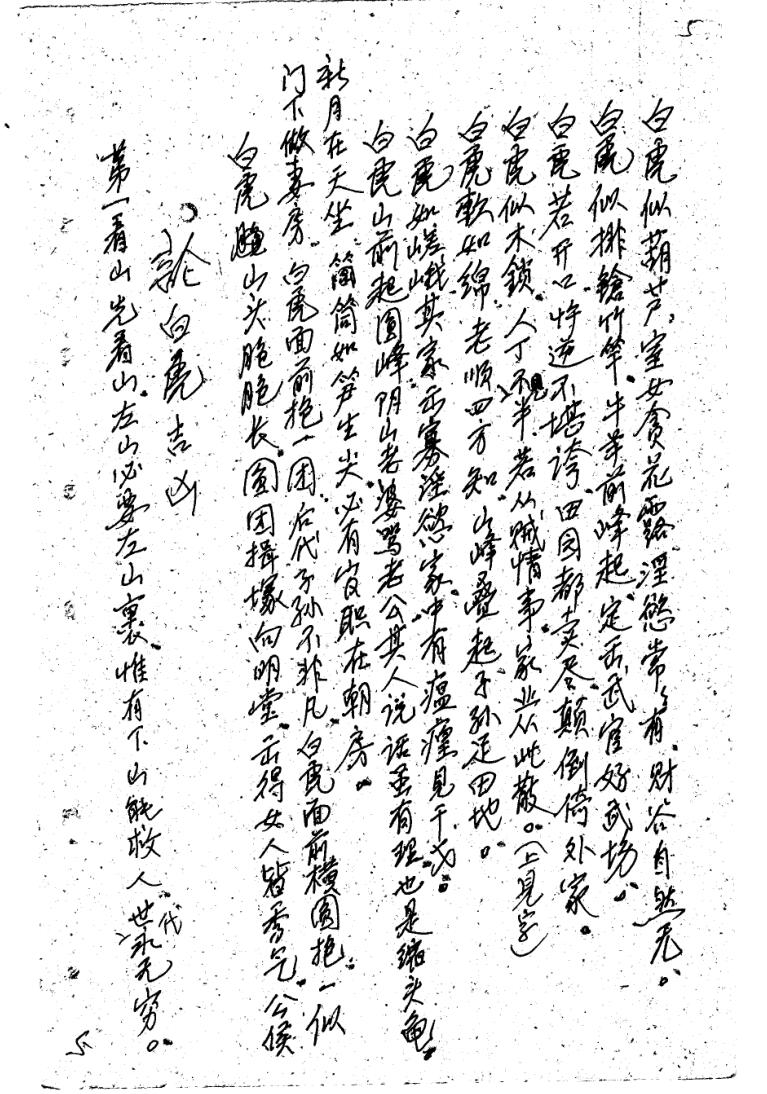 5
白虎似葫芦,室女貪花露,淫慾常常有,財谷自然无。
白虎似排鎗竹竿,牛羊前峰起,定出武官好武場。
白虎若开口,忤逆不堪誇,田园都卖尽,颠倒倚外家。
白虎似木鎖,人丁不見半,若从贼情事,家业从此散。(上見字)
白虎軟如綿,老順四方知,山峰叠起子孙足田地。
白虎如嵯峨,其家出寡淫慾,家中有瘟瘟見干戈。
白虎山前起圓峰,阴山老婆罵老公,其人说话虽有理,也是縮头龜。
新月在天坐,筒筒如笋生尖,必有官职在朝房。
门下做妻房,白虎面前抱一团,后代子孙不非凡,白虎面前横圆抱,一似
白虎山头脆脆长,圓团揖塚向明堂,出得女人皆秀气,公侯
論白虎吉凶
第一看山先看山,左山必要左山裏,惟有下山能救人,世代永无穷。
5